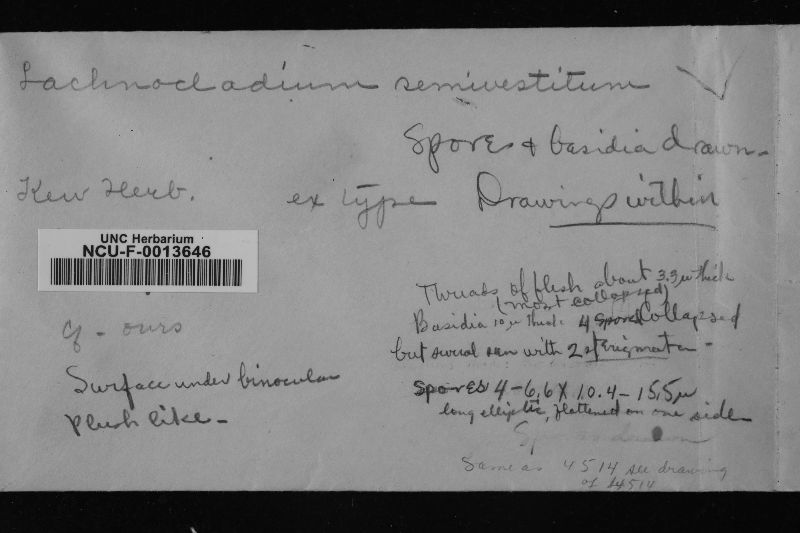 Lachnocladium semivestitum
Spores & basidia drawn-
Kew Herb. ex type Drawings within
UNC Herbarium
NCU-F-0013646
Threads of flesh about 3.3µ thick
(most collapsed)
Basidia 10µ thick 4 spored Collapsed
but several seen with 2 sterigmata -
cf - ours
Surface under binocular
plush like -
Spores 4-6.6 X 10.4-15.5µ
long elliptic, flattened on one side
Same as 4514 see drawing
of 4514